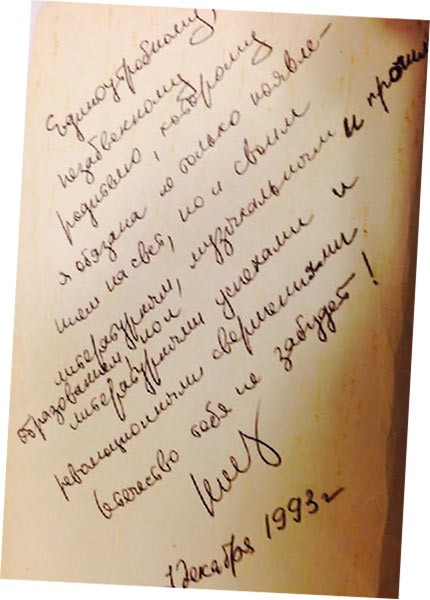 Единоутробному,
незабвенному
родителю, которому
я обязана не только появле-
нием на свет, но и своим
литературным, музыкальным и прочим
образованием,
литературными успехами и
революционными свершениями
Отечество тебя не забудет!
1 декабря 1993 г